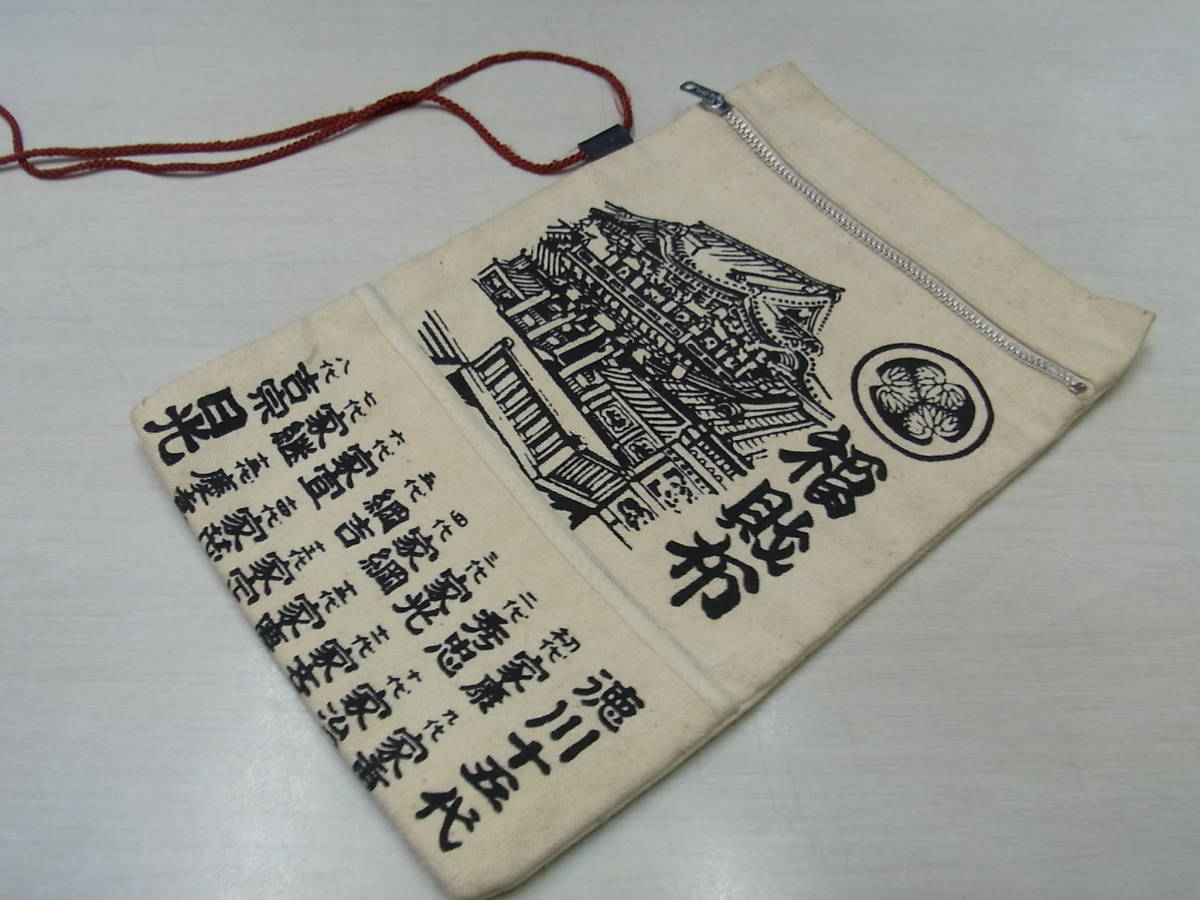 福財布
徳川十五代
初代 家康
二代 秀忠
三代 家光
四代 家綱
五代 綱吉
六代 家宣
七代 家継
八代 吉宗
九代 家重
十代 家治
十一代 家斉
十二代 家慶
十三代 家定
十四代 家茂
十五代 慶喜
日光